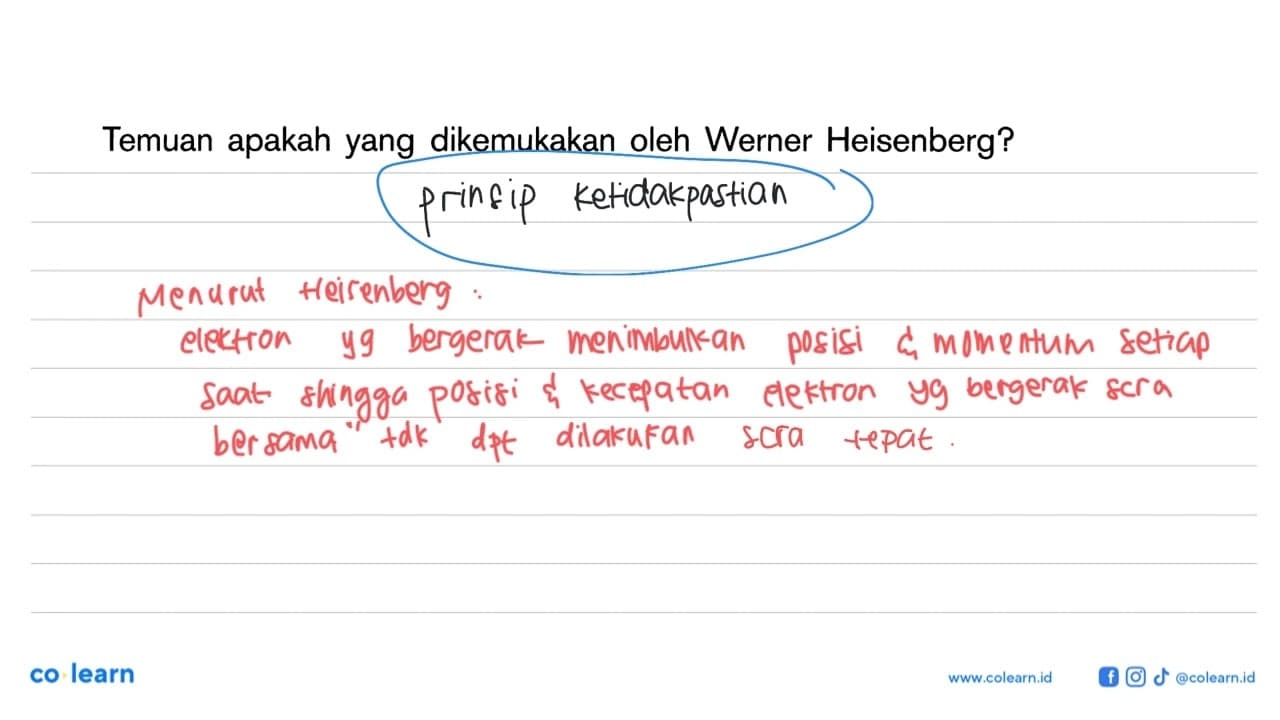 Temuan apakah yang dikemukakan oleh Werner Heisenberg?
prinsip ketidakpastian
Menurut Heisenberg :
elektron yg bergerak menimbulkan posisi & momentum setiap
saat shingga posisi & kecepatan elektron yg bergerak scra
bersama" tdk dpt dilakukan scra tepat.
co learn
www.colearn.id
@colearn.id